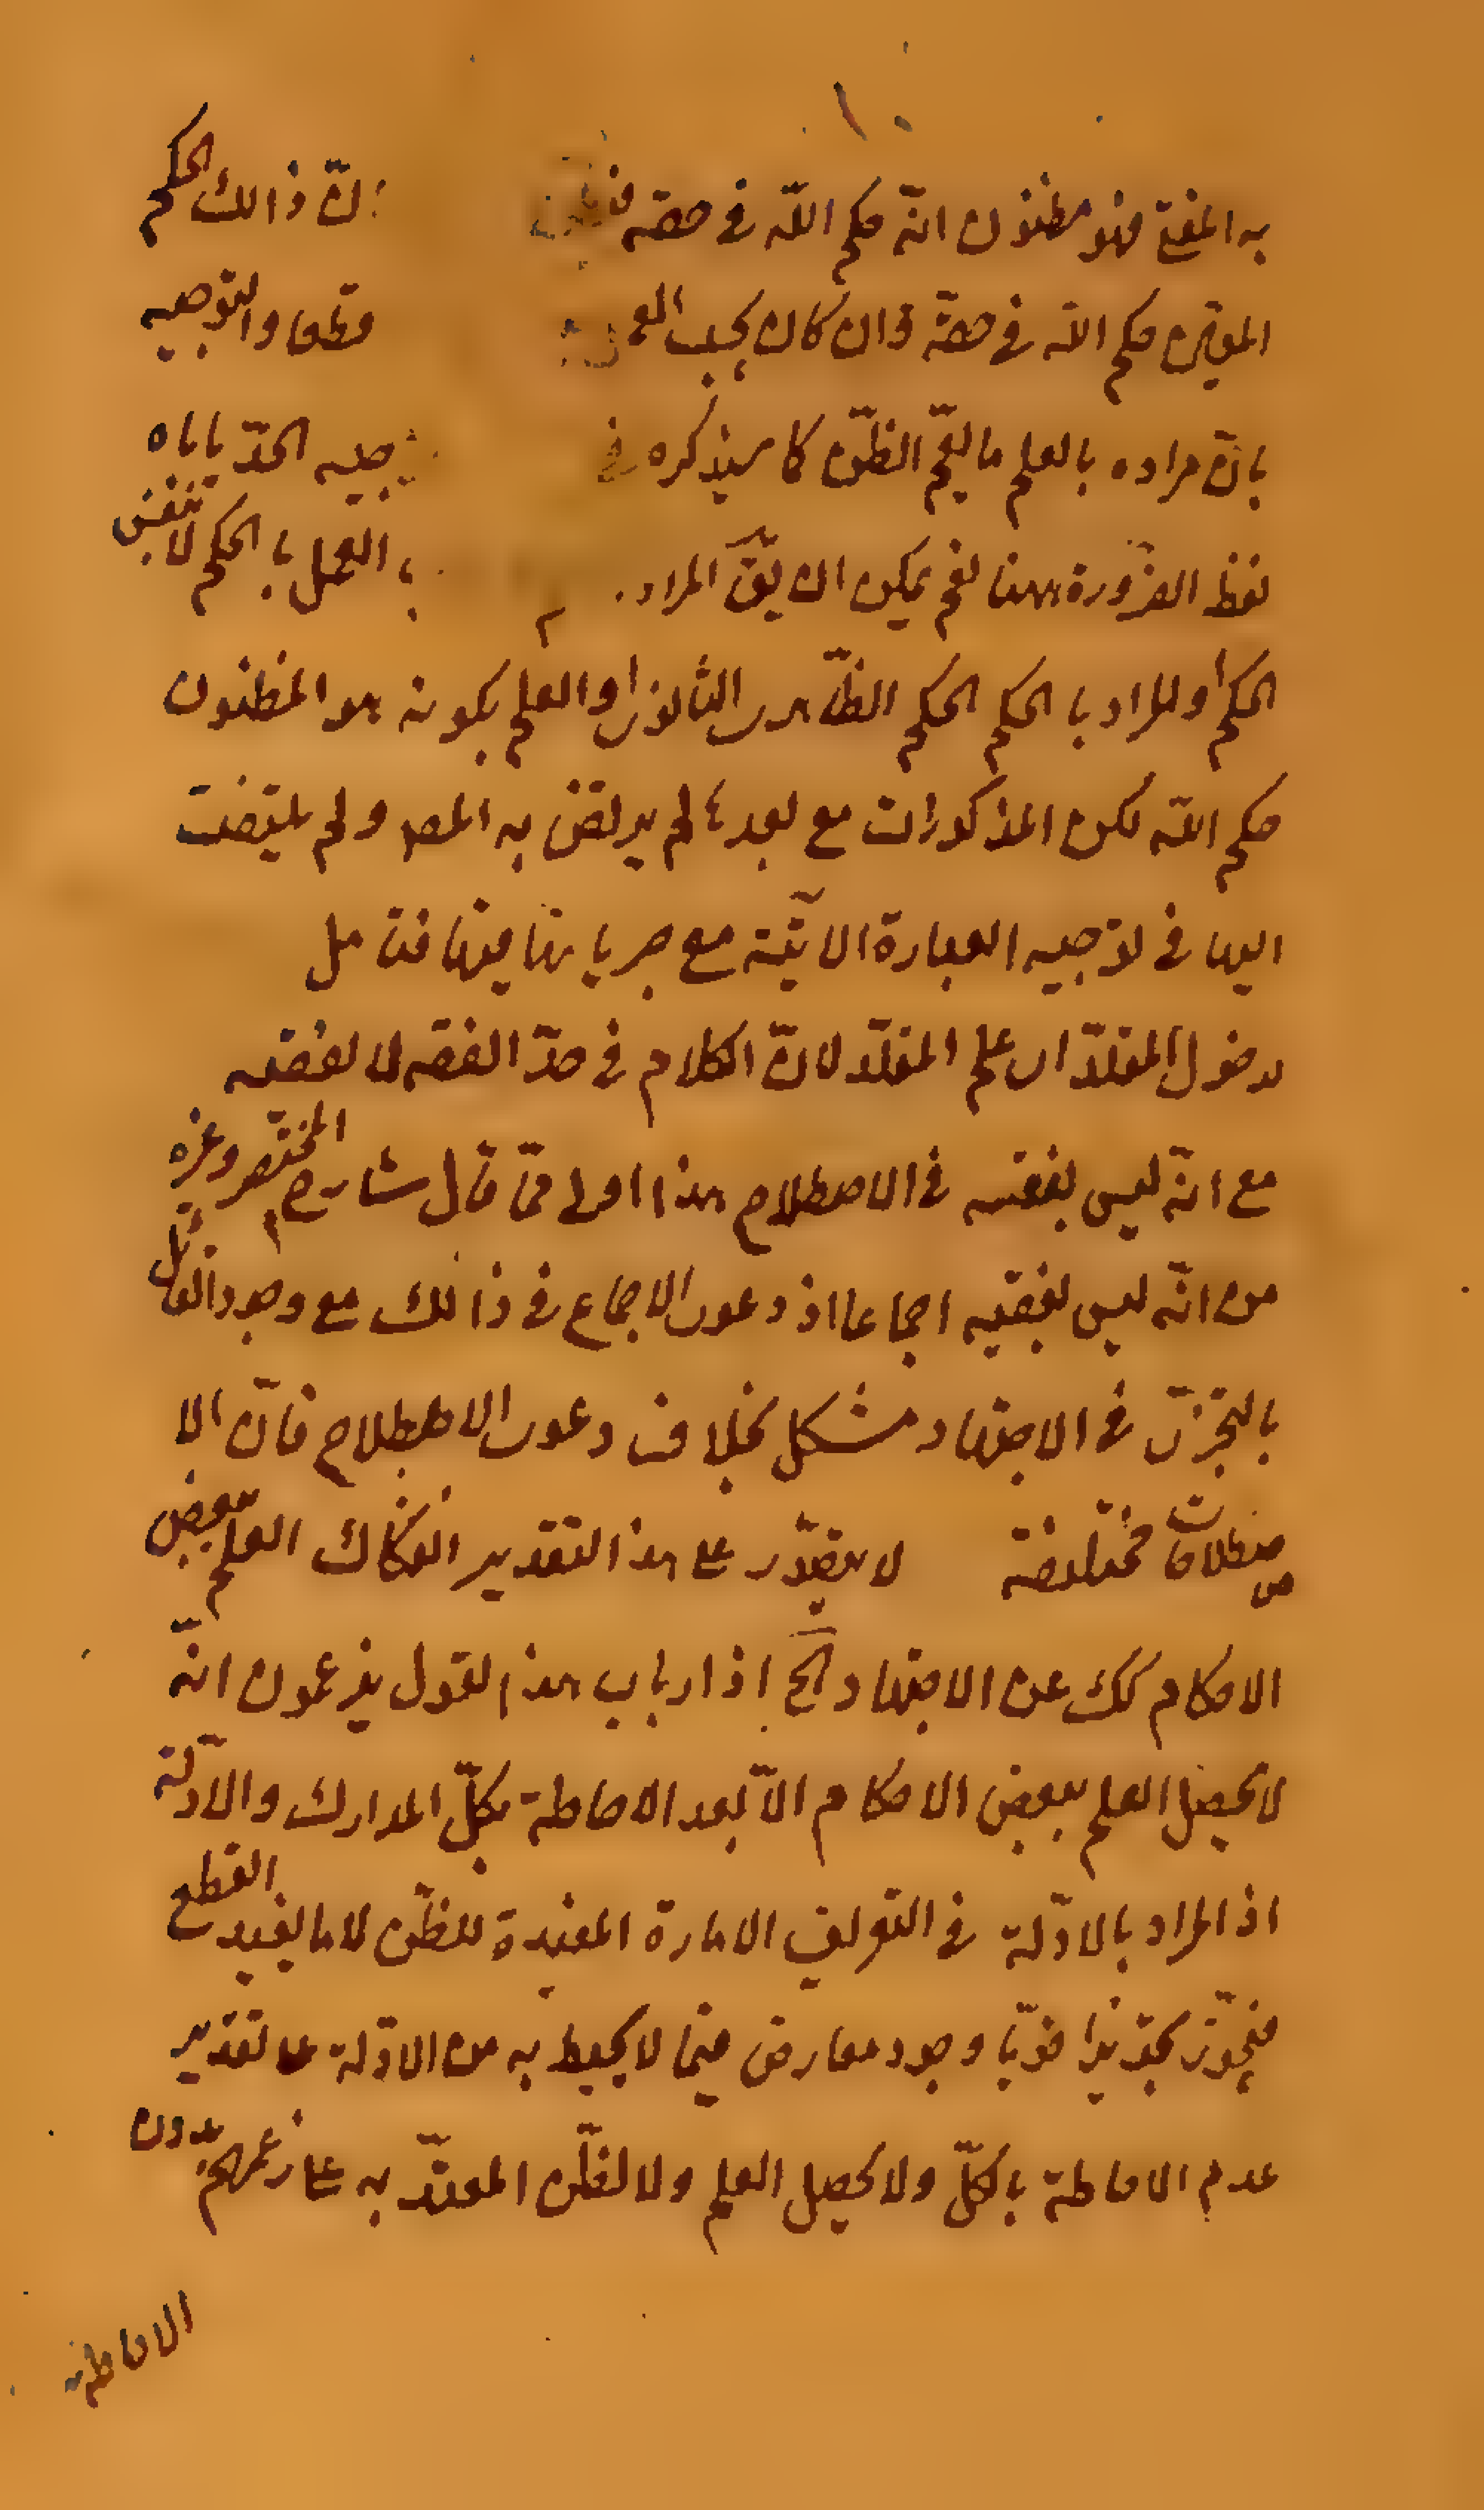 ١٠
به المفتی فهو مظنون انّه حکم اللّه فی حقّه انّ ذالك الحکم
المعیّن حکم اللّه فی حقّه وان کان یجب قطعا والتوجیه
بانّ مراده بالعلم ما یعمّ الظنّ کما سیذکره فی توجیه الحدّ یاباه
لفظ الضّرورة هنا نعم یمکن ان یقّ المراد العمل با الحکم لا نفس
الحکم او المراد با الحکم الحکم الظّاهری الثانوی او العلم بکونه هو المظنون
حکم اللّه لکن المذکورات مع بعدها لم یرتض به المصر ولم یلتفت
الیها فی توجیه العبارة الاتیة مع جریانها فیها فتامل
دخول المقلّد ای علم المقلّد لانّ الکلام فی حدّ الفقه لا الفقیه
مع انّه لیس بفقه فی الاصطلاح هذا اولی ممّا قال شارح المختصر وغیره
من انّه لیس بفقیه اجماعا اذ دعوی الاجماع فی ذالك مع وجود القائل
بالتجزّی فی الاجتهاد مشکل بخلاف دعوی الاصطلاح فانّ الا
صطلاحات مختلفة لا یتصّور علی هذا التقدیر انفکاك العلم ببعض
الاحکام کك عن الاجتهاد الخ اذ ارباب هذا القول یزعمون انّه
لا یحصل العلم ببعض الاحکام الاّ بعد الاحاطة بکلّ المدارك والادلّة
اذ المراد بالادلّة فی التعریف الامارة المفیدة للظّن لا ما یفید القطع
فیجوّز تجویزا قویّا وجود معارض فیما لا یحیط به من الادلّة علی تقدیر
عدم الاحاطة بالکلّ ولا یحصل العلم ولا الظّن المعتدّ به علی زعمهم بدون
الاحاطة